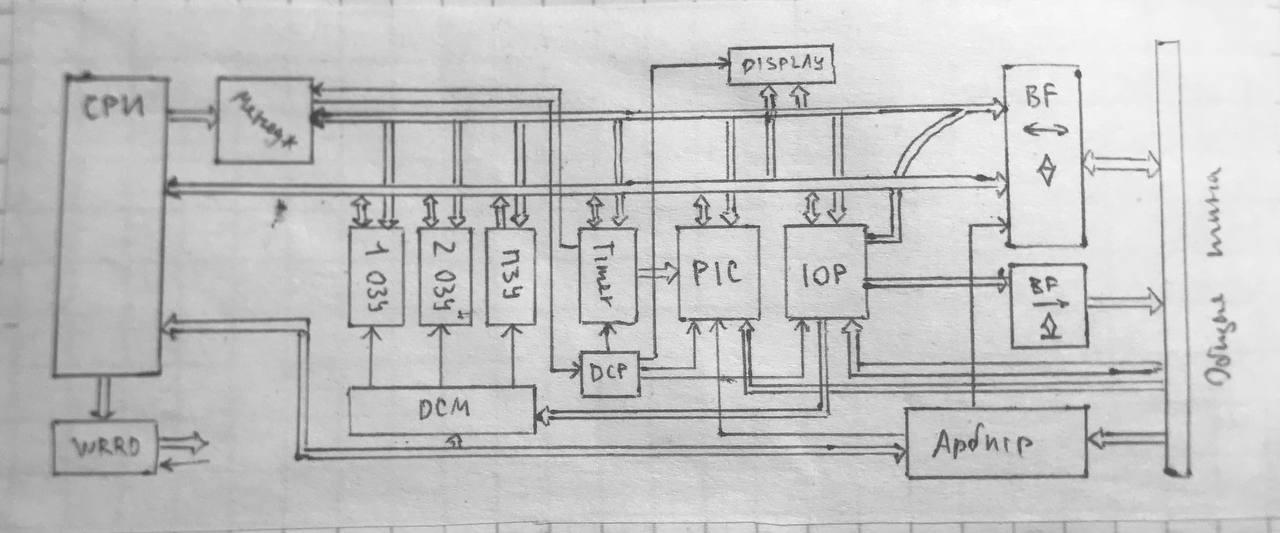 CPU
DISPLAY
BF
1 ОЗУ
2 ОЗУ
ПЗУ
Timer
PIC
IOP
BF
DCP
DCM
WRRD
Арбитр
Общая шина